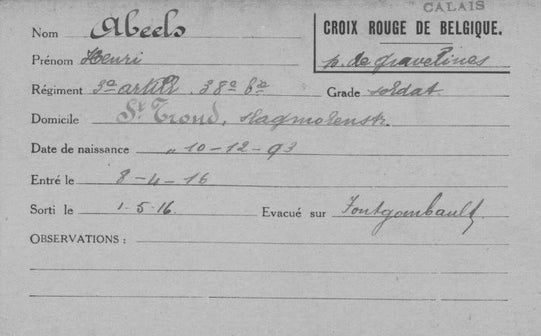 CALAIS
CROIX ROUGE DE BELGIQUE.
p. de gravelines
Nom Abeels
Prénom Henri
Régiment 3ª artill. 38ª bie Grade soldat.
Domicile St Trond, Hagmolenstr.
Date de naissance " 10-12-93
Entré le 8-4-16
Sorti le 1-5-16. Evacué sur Fontgombault
OBSERVATIONS :